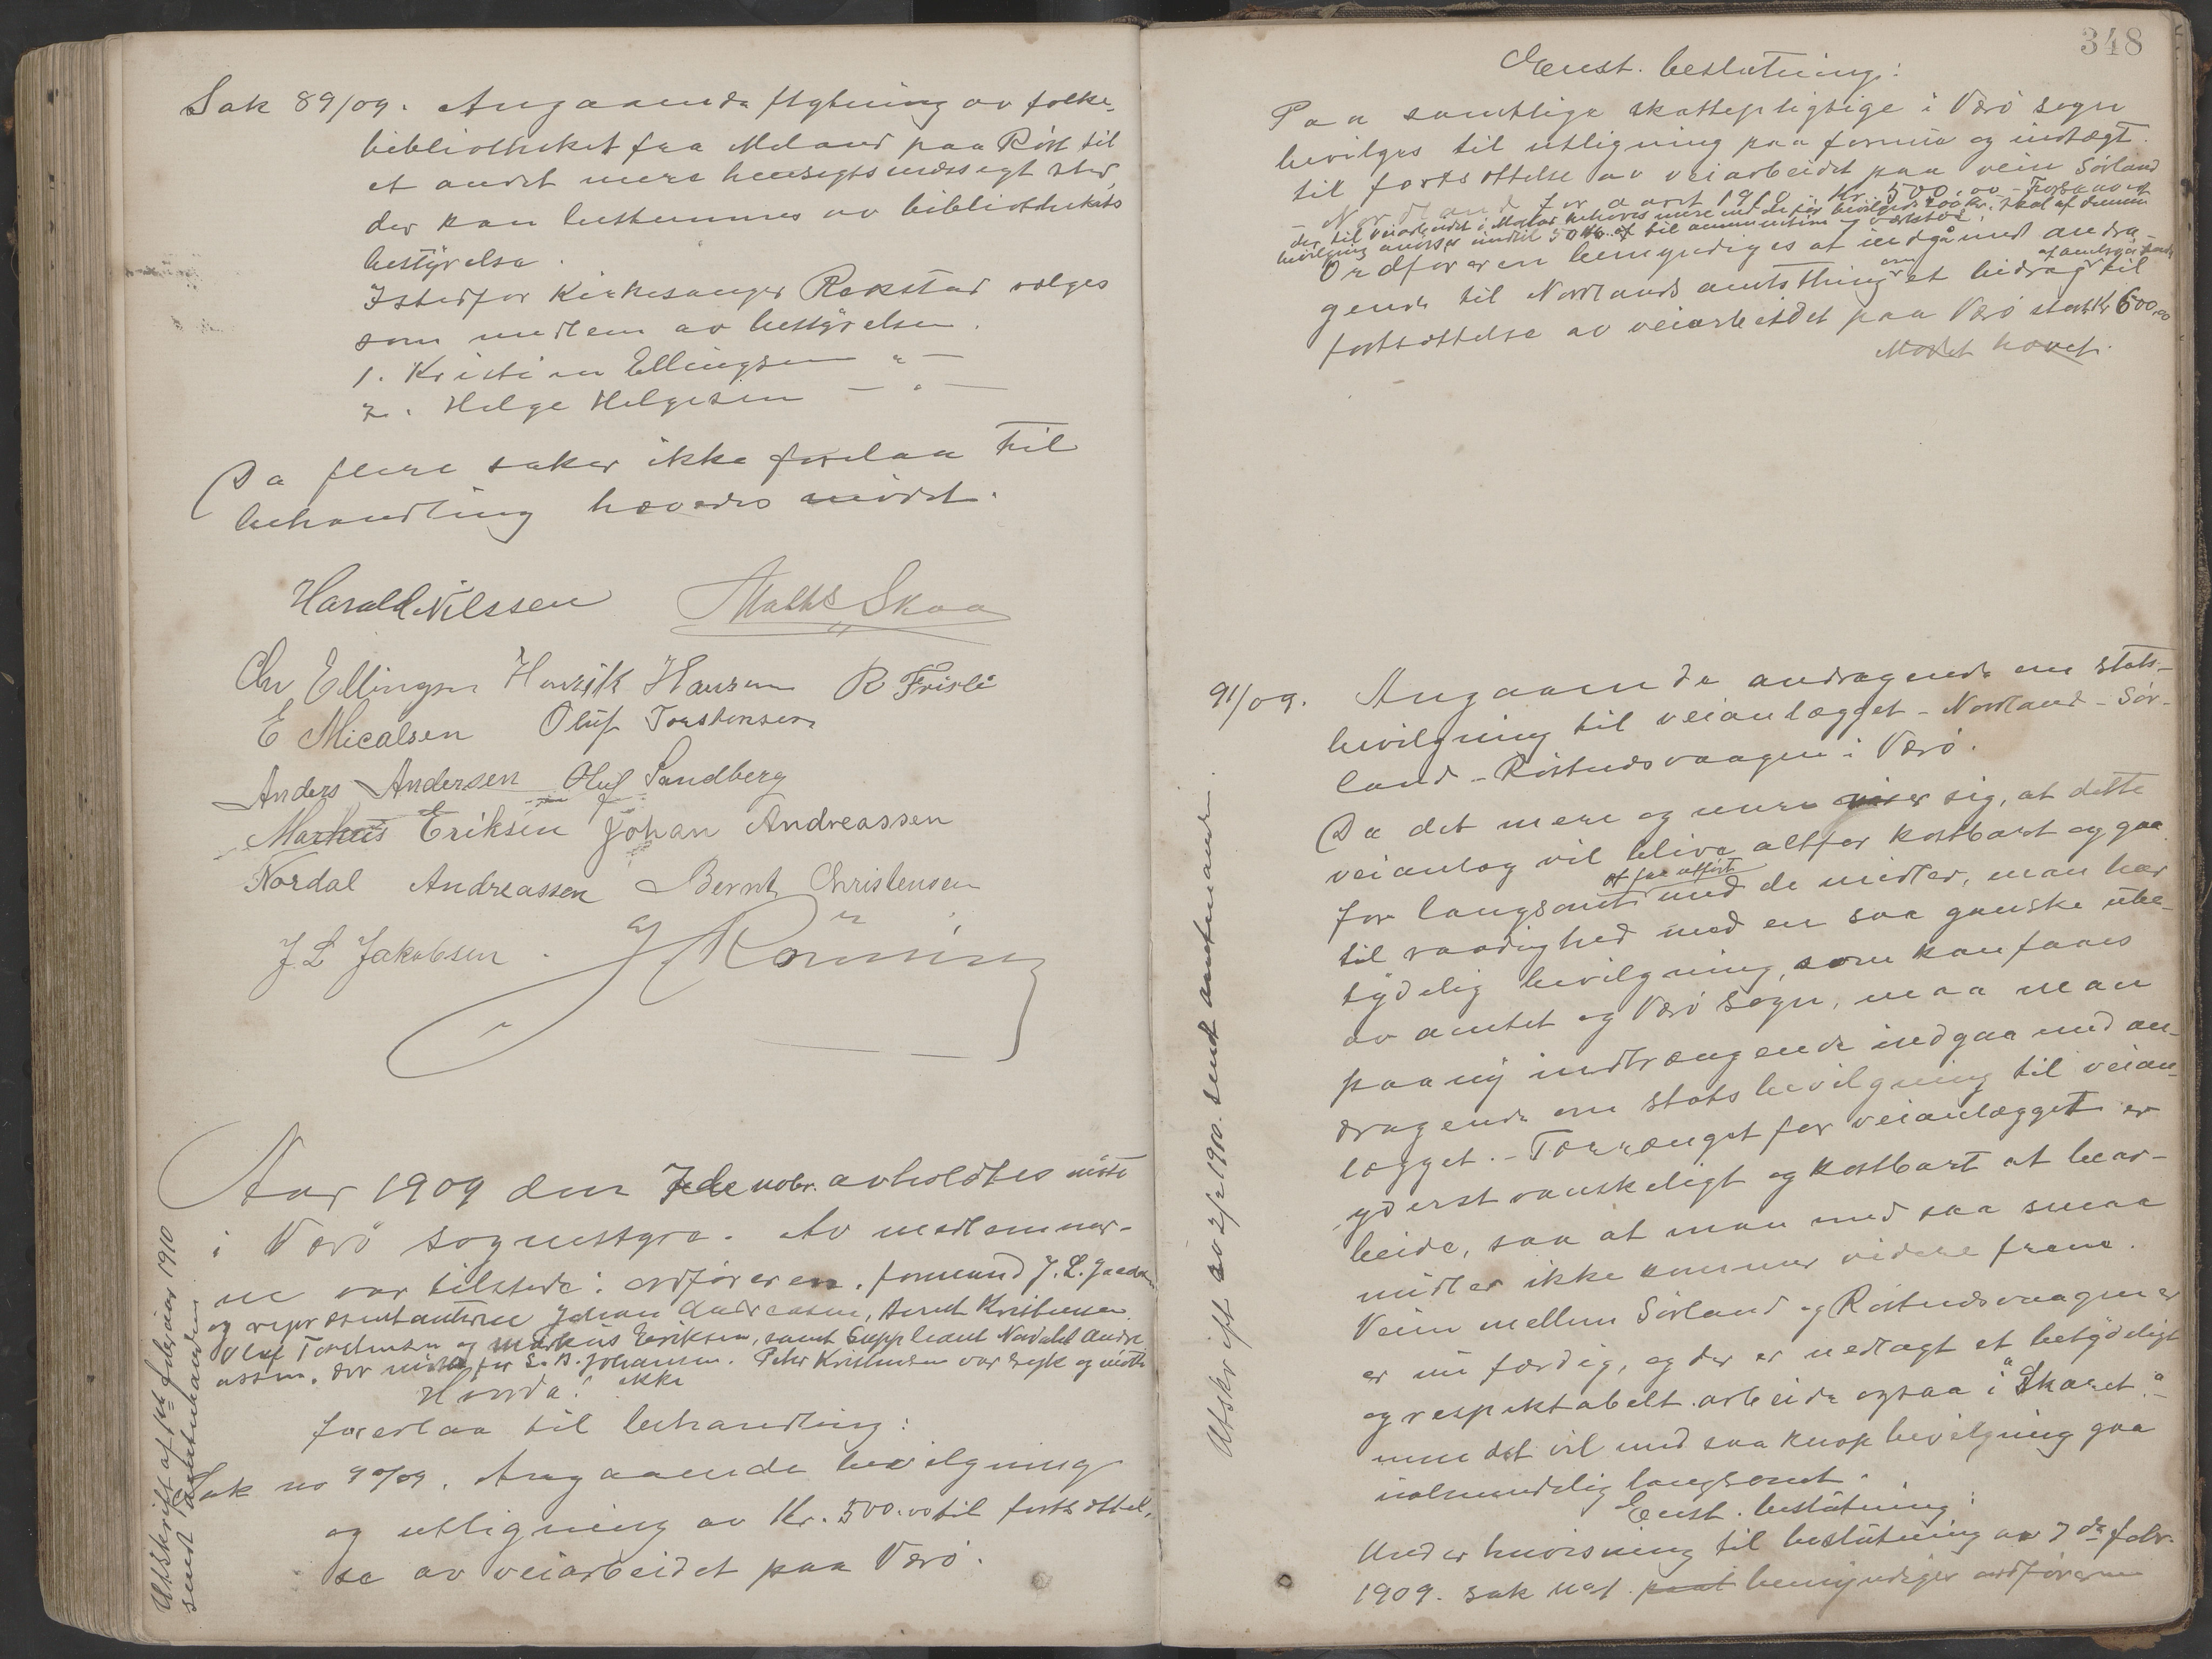 Sak 89/09. Angaaende flytning av folke-
bibliotheket fra Meland paa Röst til
et andet mere hensigtsmæssigt sted,
der kan bestemmes av bibliothekets
bestyrelse.
Istedfor Kirkesanger Rekstad vælges
som medlem av bestyrelsen.
1. Kristian Ellingsen — " —
2. Helge Helgesen — " —
Da flere saker ikke forelaa til
behandling hævedes mödet.
Harald Nilssen Skaa
Chr Ellingsen Henrik Hansen R Frisli
E Micalsen Oluf Torstensen
Anders Andersen Oluf Sandberg
Markus Eriksen Johan Andreassen
Nordal Andreassen Bernt Christensen
J L Jakobsen. Rönning
Aar 1909 den 7de novbr. avholdtes möte
i Værö sognestyre. Av medlemmer-
ne var tilstede: ordföreren, formand J. L.
og repræsentanterne Johan Andreasen, Bernt Kristensen
Oluf Torstensen og Markus Eriksen, samt Suppleant Nordahl Andre-
assen, der mötte for S. B. Johansen. Peter Kristensen var syk og mötte
ikke
forelaa til behandling:
Sak no 90/09. Angaaende bevilgning
og utligning av Kr. 500.00 til fortsættel-
se av veiarbeidet paa Værö.
Utskrift af 1ste februar 1910
sendt amtmanden
348
Eenst. beslutning:
Paa samtlige skattepligtige i Værö sogn
bevilges til utligning paa formue og indtægt
til fortsættelse av veiarbeidet paa veien Sörland
- Nordland for aaret 1910 - Kr. 500,00 -
der til veiarbeidet i behöves mere end de för bevilgede 200 kr. skal af denne
bevilgning anvises indtil 50 Kr. til ammunition og verktöi.
Ordföreren bemyndiges at indgå med andra-
gende til Nordlands amtsthing om et bidrag til
fortsættelse av veiarbeidet paa Værö stort Kr 600,00
Mödet hævet.
91/09. Angaaende andragende om stats-
bevilgning til veianlægget - Nordland - Sör-
land - Röstnesvaagen i Værö.
Da det mere og mere viser sig, at dette
veianlæg vil blive altfor kostbart og gaa
at faa utfört
for langsomt med de midler, man har
til raadighed med en saa ganske ube-
tydelig bevilgning, som kan faaes
av amtet og Værö sogn, maa man
paany indtrængende indgaa med an-
dragende om statsbevilgning til veian-
lægget. - Terrænget for veianlægget er
yderst vanskeligt og kostbart at bear-
beide, saa at man med saa smaa
midler ikke kommer videre frem.
Veien mellem Sörland og Röstnesvaagen er
er nu færdig, og der er nedlagt et betydeligt
og respektabelt arbeide ogsaa i "Skaret" -
men det vil med saa knap bevilgning gaa
langsomt.
Eenst. beslutning:
Under henvisning til beslutning av 7de febr.
1909. sak bemyndiges ordföreren
Utskrift av 2/2 1910. sendt amtmanden.